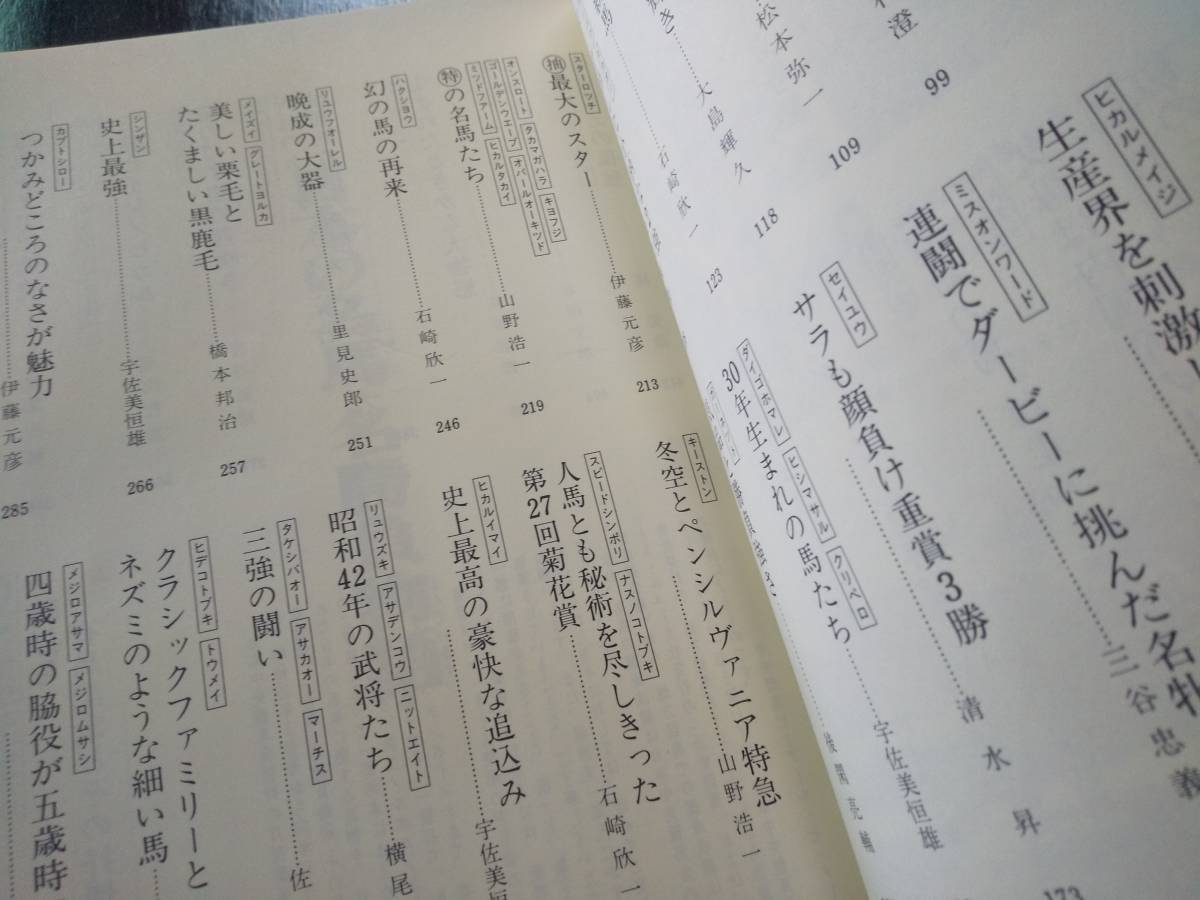 澄
99
松本弥一
109
き
大島輝久
118
馬
石崎欣一
123
ヒカルメイジ
生産界を刺激し
ミスオンワード
連闘でダービーに挑んだ名牝
三谷忠義
セイユウ
サラも顔負け重賞3勝
清水昇
173
ダイゴホマレ ヒシマサル クリペロ
30年生まれの馬たち
宇佐美恒雄
後閑亮輔
スターロツチ
抽最大のスター
伊藤元彦
213
オンスロート タカマガハラ キヨフジ
ゴールデンウエーブ オパールオーキッド
ミツドフアーム ヒカルタカイ
特の名馬たち
山野浩一
219
ハクシヨウ
幻の馬の再来
石崎欣一
246
リユウフオーレル
晩成の大器
里見史郎
251
メイズイ グレートヨルカ
美しい栗毛と
たくましい黒鹿毛
橋本邦治
257
シンザン
史上最強
宇佐美恒雄
266
カブトシロー
つかみどころのなさが魅力
伊藤元彦
285
キーストン
冬空とペンシルヴァニア特急
山野浩一
スピードシンボリ ナスノコトブキ
人馬とも秘術を尽しきった
第27回菊花賞
石崎欣一
ヒカルイマイ
史上最高の豪快な追込み
宇佐美恒
リュウズキ アサデンコウ ニットエイト
昭和42年の武将たち
横尾
タケシバオー アサカオー マーチス
三強の闘い
佐
ヒデコトブキ トウメイ
クラシックファミリーと
ネズミのような細い馬
メジロアサマ メジロムサシ
四歳時の脇役が五歳時